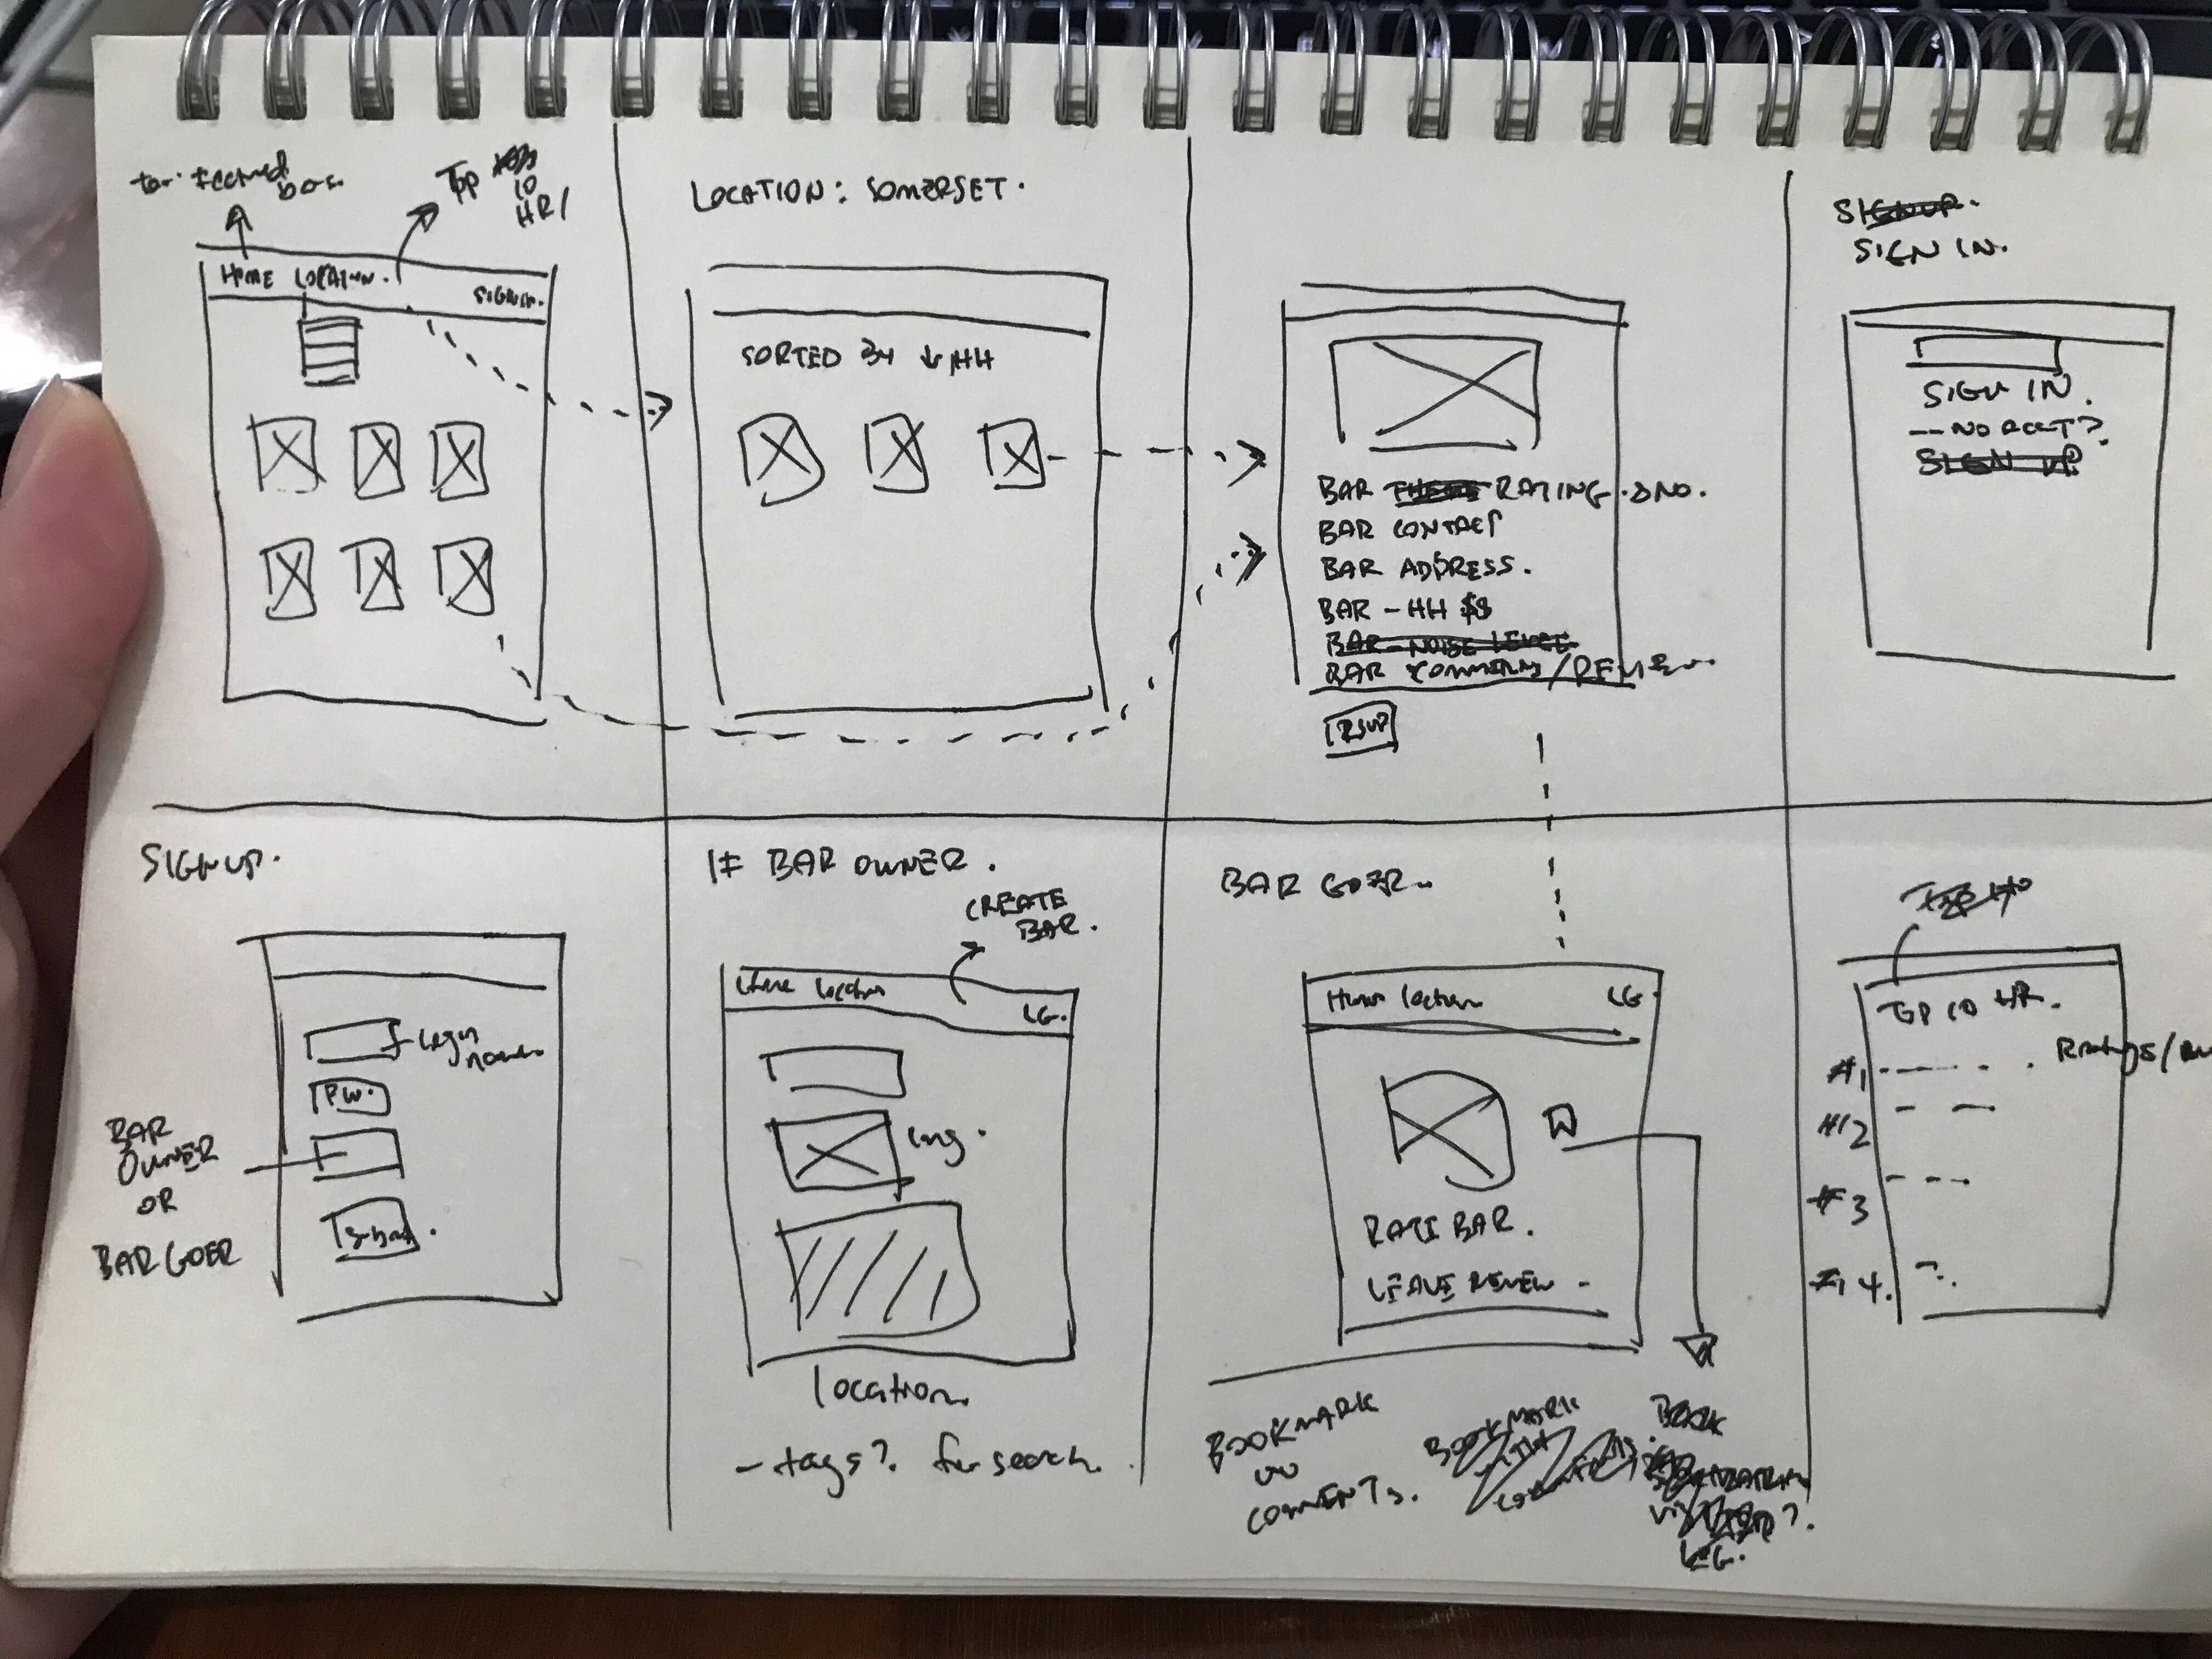 Top
10
HR/
HOME LOCATION.
SIGN IN.
LOCATION: SOMERSET.
SORTED BY ↓ HH
BAR RATING. → NO.
BAR CONTACT
BAR ADDRESS.
BAR - HH $$
BAR - NOISE LEVEL
BAR COMMENTS/REVIEW
RSVP
SIGNUP.
SIGN IN.
SIGN IN.
-- NO ACCT?
SIGN UP
SIGNUP.
Login
name
PW.
BAR
OWNER
OR
BAR GOER
IF BAR OWNER.
CREATE
BAR.
Location
LG.
img.
location
- tags? for search.
BAR GOER..
Home location
LG.
RATE BAR.
LEAVE REVIEW -
BOOKMARK
COMMENTS.
BOOKMARK
LG.
TOP 10 HR.
#1
Ratings/
#2
#3
#4.